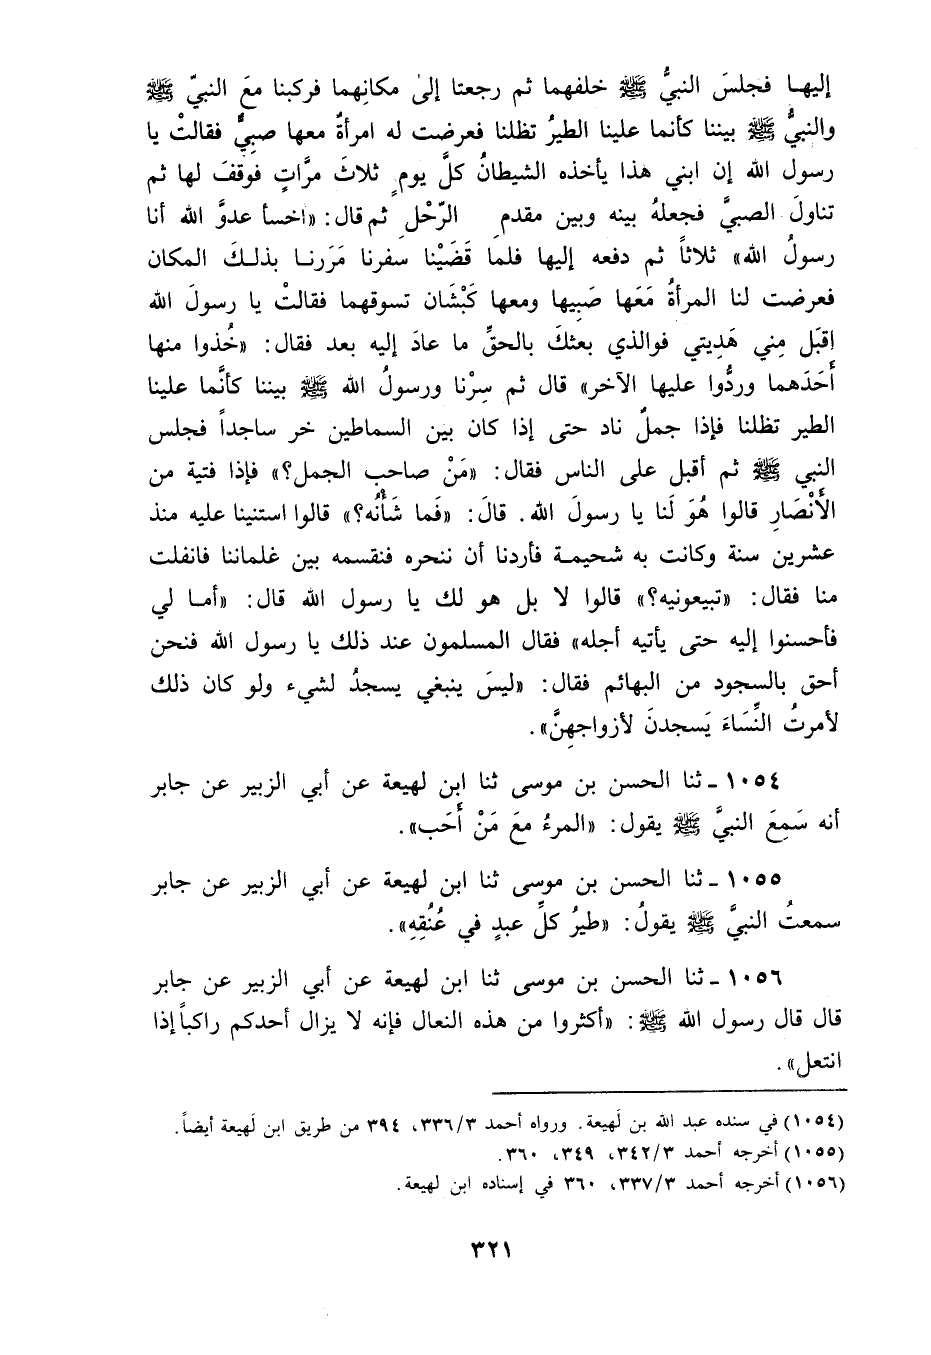 إليهـا فجلسَ النبيُّ ﷺ خلفهما ثم رجعتا إلىٰ مكانِهما فركبنا معَ النبيّ ﷺ
والنبيُّ ﷺ بيننا كأنما علينا الطيرُ تظلنا فعرضت له امرأةٌ معها صبيٌّ فقالتْ يا
رسول الله إن ابني هذا يأخذه الشيطانُ كلَّ يومٍ ثلاثَ مرَّاتٍ فوقفَ لها ثم
تناولَ الصبيَّ فجعلهُ بينه وبين مقدمِ الرّحْلِ ثم قال: «اخسأ عدوَّ الله أنا
رسولُ الله» ثلاثاً ثم دفعه إليها فلما قَضَيْنا سفرنا مَرَرنـا بذلـكَ المكان
فعرضت لنا المرأةُ مَعَها صَبِيها ومعها كَبْشَان تسوقهما فقالتْ يا رسولَ الله
اِقبَل مِني هَدِيتي فوالذي بعثكَ بالحقِّ ما عادَ إليه بعد فقال: «خُذوا منها
أَحَدَهما وردُّوا عليها الآخر» قال ثم سِرْنا ورسولُ الله ﷺ بيننا كأنَّما علينا
الطير تظلنا فإذا جملٌ ناد حتى إذا كان بين السماطين خر ساجداً فجلس
النبي ﷺ ثم أقبل على الناس فقال: «مَنْ صاحب الجمل؟» فإذا فتية من
الأَنْصَارِ قالوا هُوَ لَنا يا رسولَ الله. قالَ: «فَما شَأْنُه؟» قالوا استنينا عليه منذ
عشرين سنة وكانت به شحيمـة فأردنا أن ننحره فنقسمه بين غلماننا فانفلت
منا فقال: «تبيعونيه؟» قالوا لا بل هو لك يا رسول الله قال: «أمـا لي
فأحسنوا إليه حتى يأتيه أجله» فقال المسلمون عند ذلك يا رسول الله فنحن
أحق بالسجود من البهائم فقال: «ليسَ ينبغي يسجدُ لشيء ولو كان ذلك
لأمرتُ النِّسَاءَ يَسجدنَ لأزواجهِنَّ».
١٠٥٤ ـ ثنا الحسن بن موسى ثنا ابن لهيعة عن أبي الزبير عن جابر
أنه سَمِعَ النبيَّ ﷺ يقول: «المرءُ معَ مَنْ أَحَب».
١٠٥٥ ـ ثنا الحسن بن موسى ثنا ابن لهيعة عن أبي الزبير عن جابر
سمعتُ النبيَّ ﷺ يقولُ: «طيرُ كلِّ عبدٍ في عُنُقِهِ».
١٠٥٦ ـ ثنا الحسن بن موسى ثنا ابن لهيعة عن أبي الزبير عن جابر
قال قال رسول الله ﷺ: «أكثروا من هذه النعال فإنه لا يزال أحدكم راكباً إذا
انتعل».
(١٠٥٤) في سنده عبد الله بن لَهيعة. ورواه أحمد ٣٣٦/٣، ٣٩٤ من طريق ابن لَهيعة أيضاً.
(١٠٥٥) أخرجه أحمد ٣٤٢/٣، ٣٤٩، ٣٦٠.
(١٠٥٦) أخرجه أحمد ٣٣٧/٣، ٣٦٠ في إسناده ابن لهيعة.
٣٢١